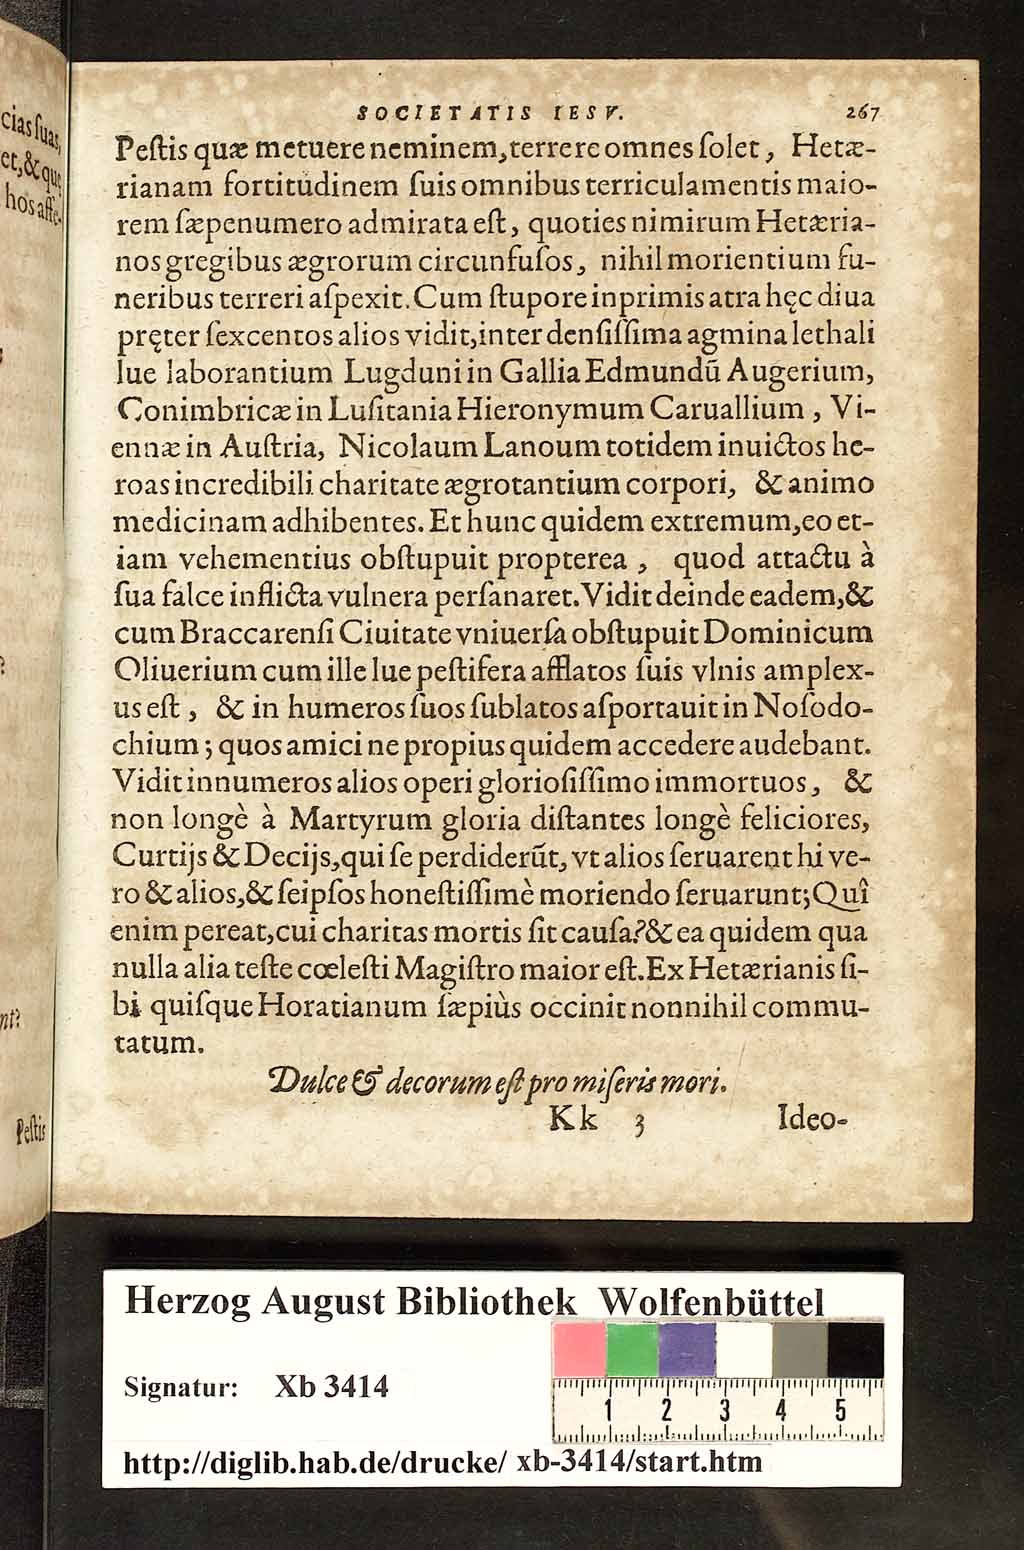 cias ſuas,
et, & quę
hos affe-
nt?
Peſtis
SOCIETATIS IESV. 267
Peſtis quæ metuere neminem, terrere omnes ſolet, Hetæ-
rianam fortitudinem ſuis omnibus terriculamentis maio-
rem ſæpenumero admirata eſt, quoties nimirum Hetæria-
nos gregibus ægrorum circunfuſos, nihil morientium fu-
neribus terreri aſpexit. Cum ſtupore inprimis atra hęc diua
pręter ſexcentos alios vidit, inter denſiſſima agmina lethali
lue laborantium Lugduni in Gallia Edmundũ Augerium,
Conimbricæ in Luſitania Hieronymum Caruallium, Vi-
ennæ in Auſtria, Nicolaum Lanoum totidem inuictos he-
roas incredibili charitate ægrotantium corpori, & animo
medicinam adhibentes. Et hunc quidem extremum, eo et-
iam vehementius obſtupuit propterea, quod attactu à
ſua falce inflicta vulnera perſanaret. Vidit deinde eadem, &
cum Braccarenſi Ciuitate vniuerſa obſtupuit Dominicum
Oliuerium cum ille lue peſtifera afflatos ſuis vlnis amplex-
us eſt, & in humeros ſuos ſublatos aſportauit in Noſodo-
chium; quos amici ne propius quidem accedere audebant.
Vidit innumeros alios operi glorioſiſſimo immortuos, &
non longè à Martyrum gloria diſtantes longè feliciores,
Curtijs & Decijs, qui ſe perdiderũt, vt alios ſeruarent hi ve-
ro & alios, & ſeipſos honeſtiſſimè moriendo ſeruarunt; Quî
enim pereat, cui charitas mortis ſit cauſa? & ea quidem qua
nulla alia teſte cœleſti Magiſtro maior eſt. Ex Hetærianis ſi-
bi quiſque Horatianum ſæpiùs occinit nonnihil commu-
tatum.
Dulce & decorum eſt pro miſeris mori.
Kk 3 Ideo-
Herzog August Bibliothek Wolfenbüttel
Signatur: Xb 3414
1 2 3 4 5
http://diglib.hab.de/drucke/ xb-3414/start.htm